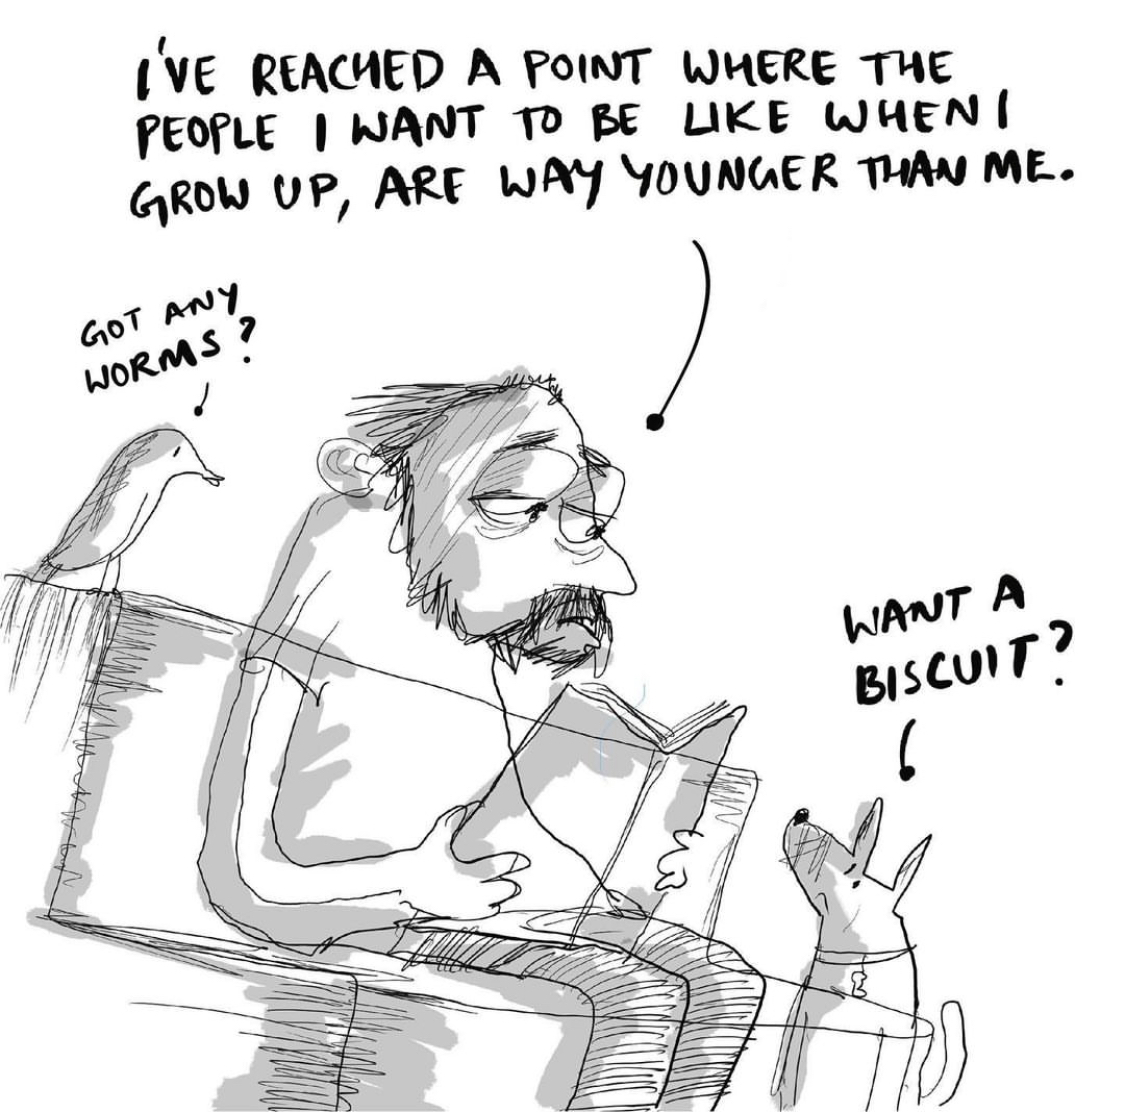 I'VE REACHED A POINT WHERE THE
PEOPLE I WANT TO BE LIKE WHEN I
GROW UP, ARE WAY YOUNGER THAN ME.
GOT ANY
WORMS?
WANT A
BISCUIT?